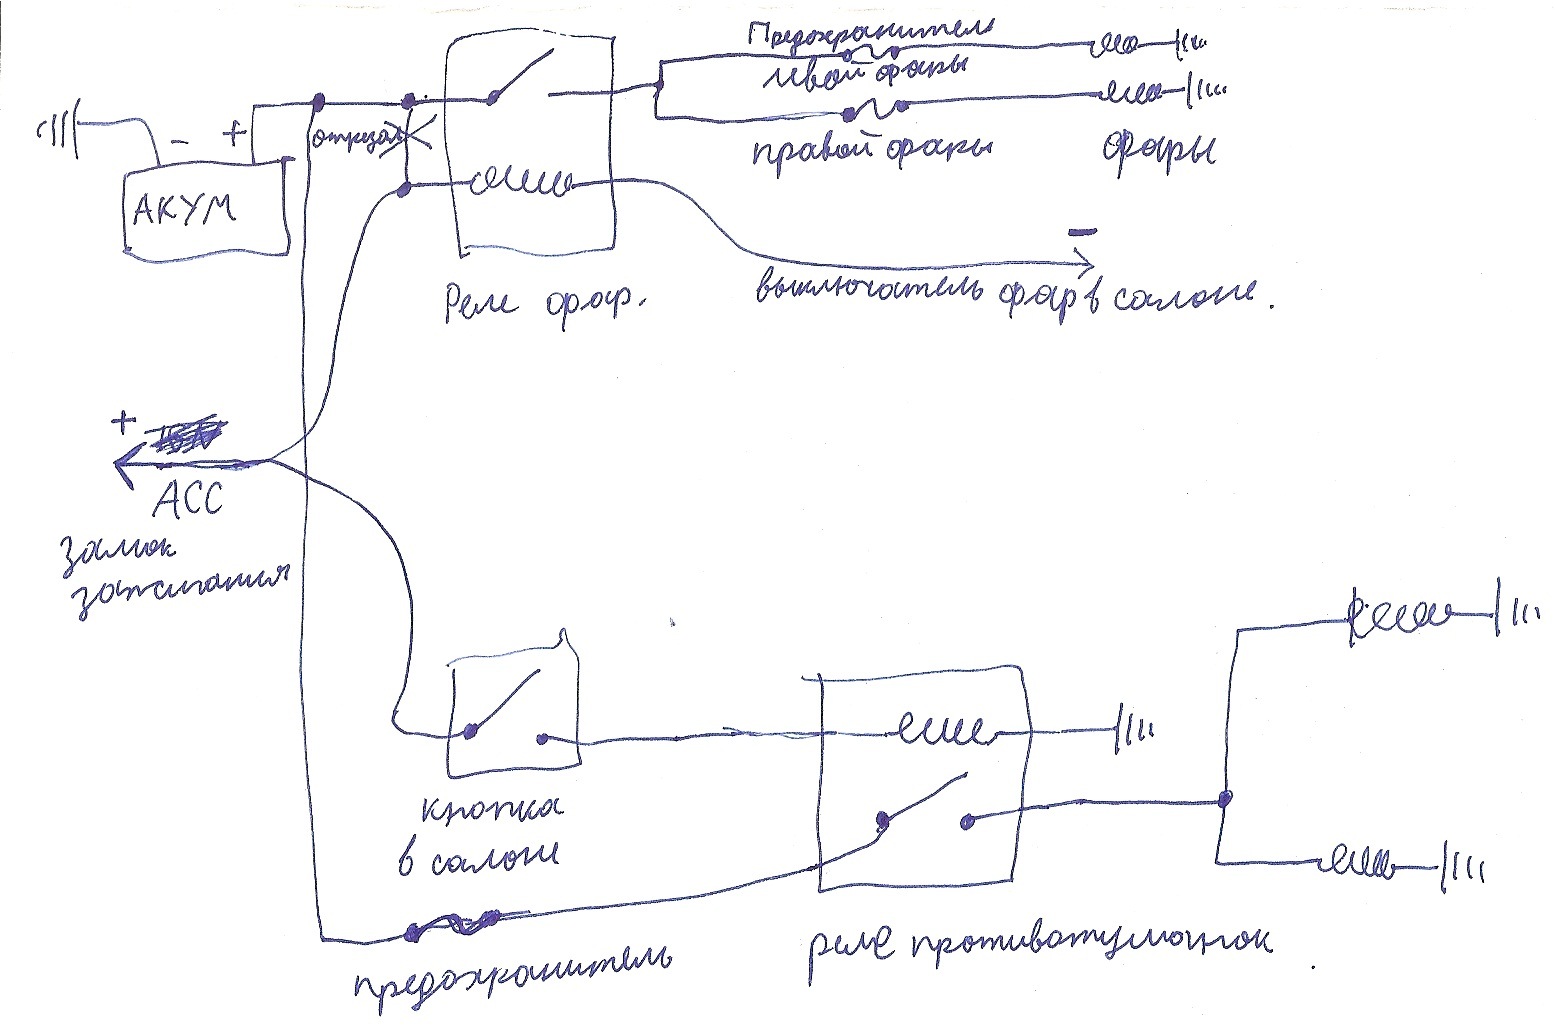 Предохранитель
левой фары
правой фары
фары
- +
отрезал
АКУМ
-
Реле фар.
выключатель фар в салоне.
+
АСС
замок
зажигания
кнопка
в салоне
предохранитель
реле противотуманок